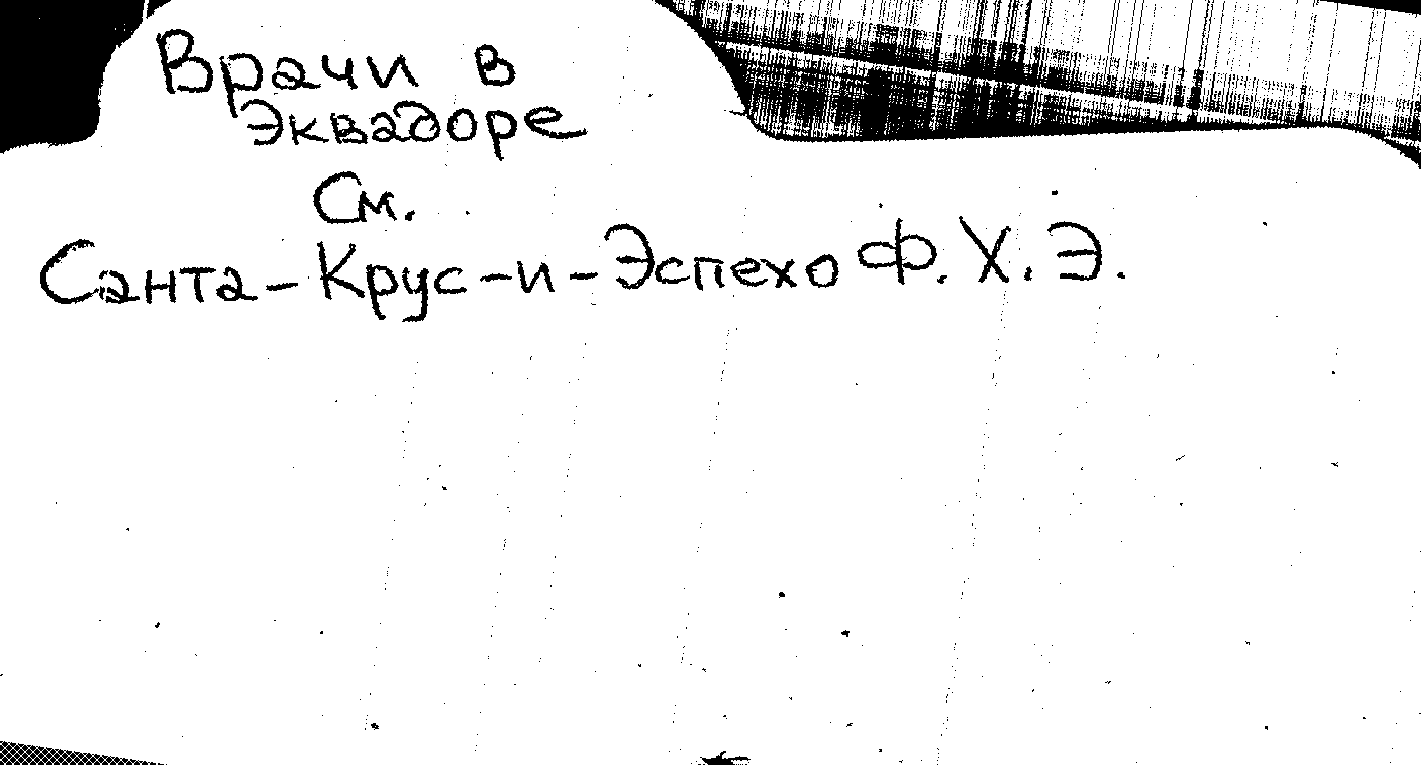 Врачи в
Эквадоре
См.
Санта-Крус-и-Эспехо Ф. Х. Э.